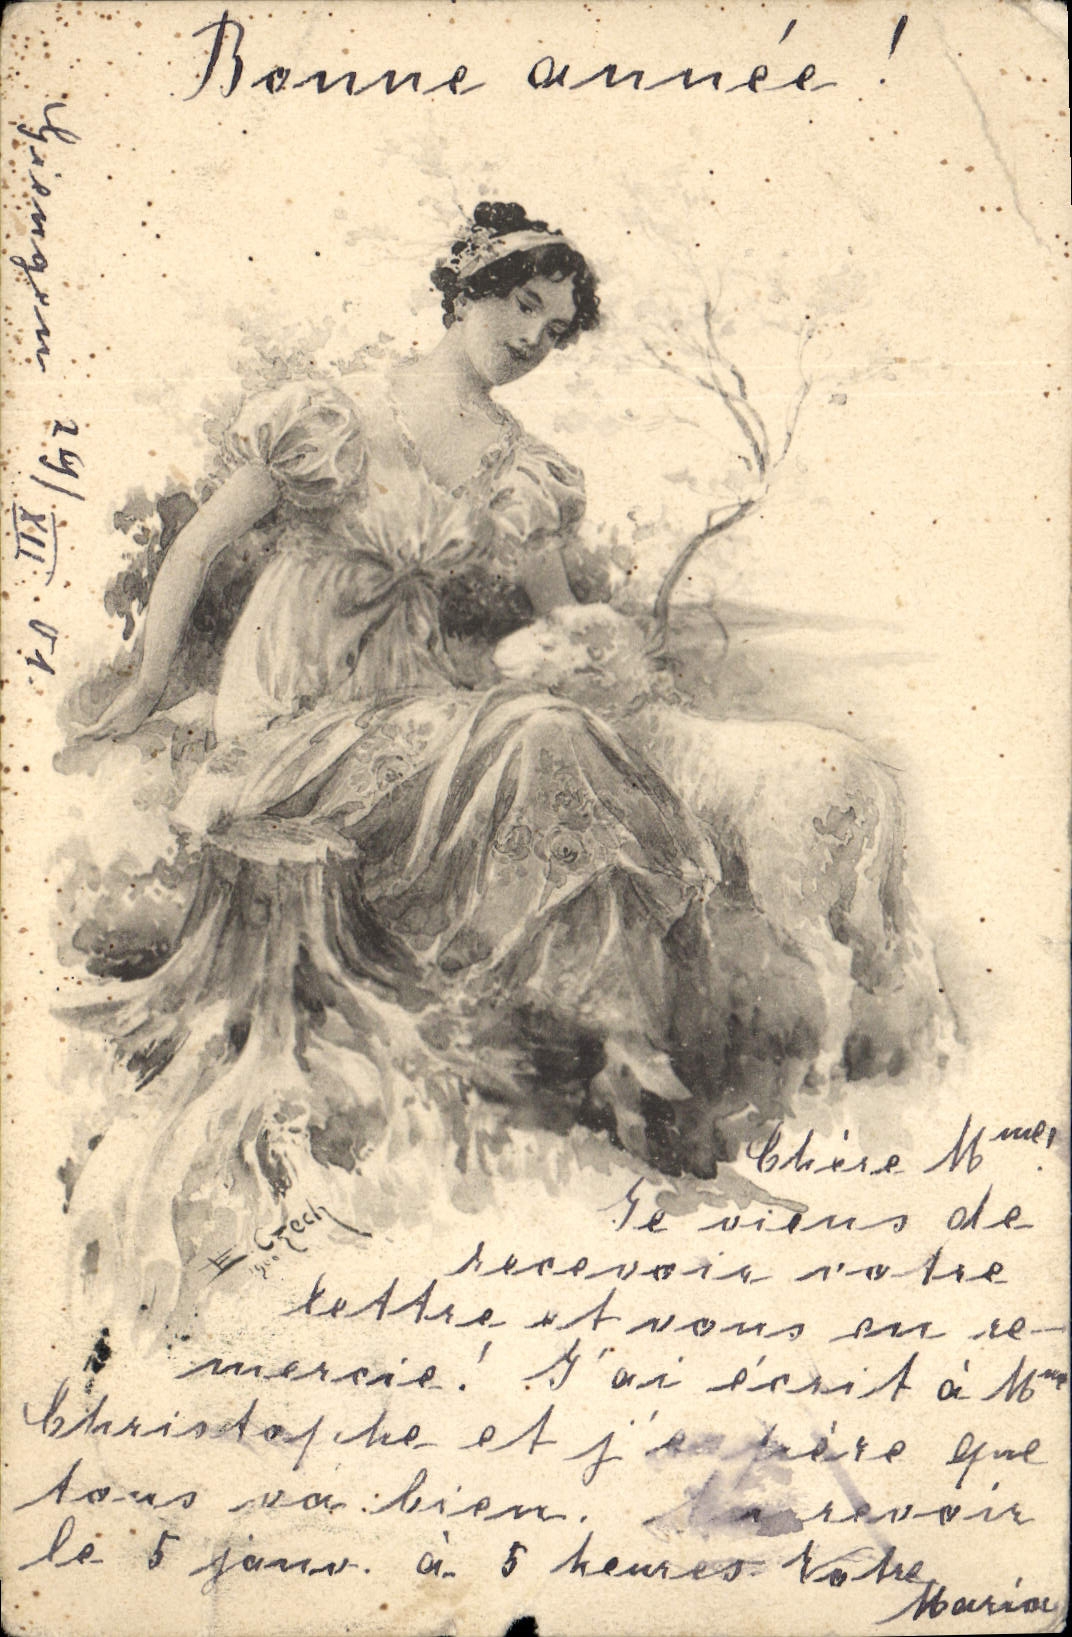 Bonne année !
Giengen 29/XII. 01.
E. Czech
1900
Chère Mme!
Je viens de
recevoir votre
lettre et vous en re-
mercie! J'ai écrit à Mme
Christophe et j'espère que
tous va bien. Au revoir
le 5 janv. à 5 heures. Votre
Maria